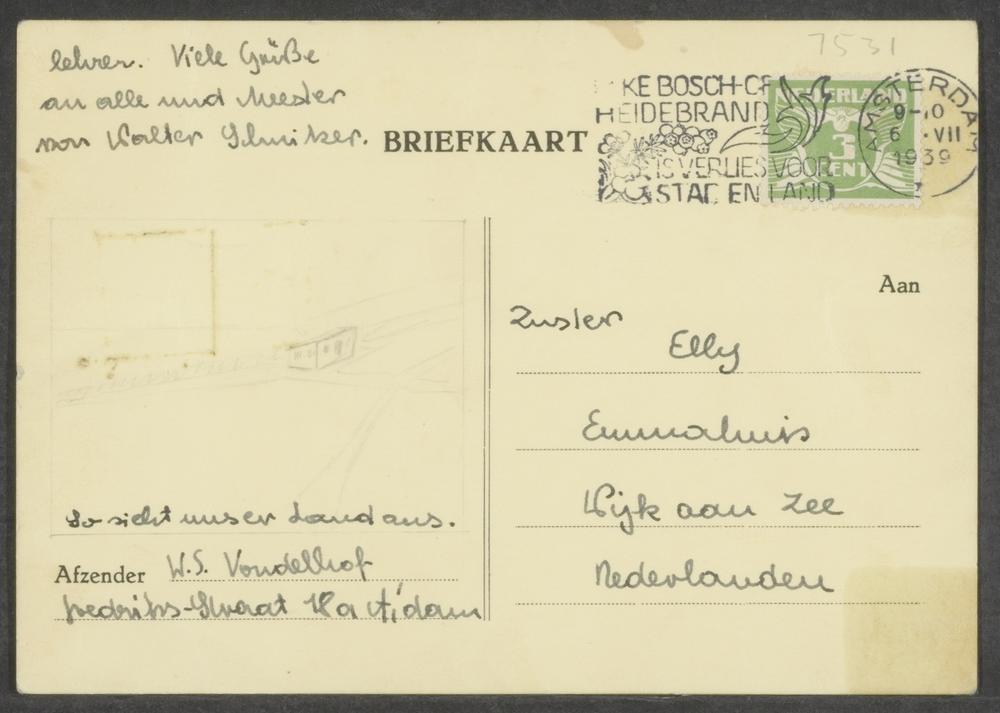 lehrer. Viele Grüße
an alle und Meester
von Walter
7531
BRIEFKAART
KE BOSCH-
HEIDEBRAND
IS VERLIES VOOR
STAD EN LAND
NEDERLAND
3
CENT
AMSTERDAM
9-10
6 VII
1939
Aan
Zuster
Elly
Emmahuis
Wijk aan Zee
Nederlanden
So sieht unser Land aus.
Afzender W.S. Vondelhof
Fredriks-Straat 18a A'dam